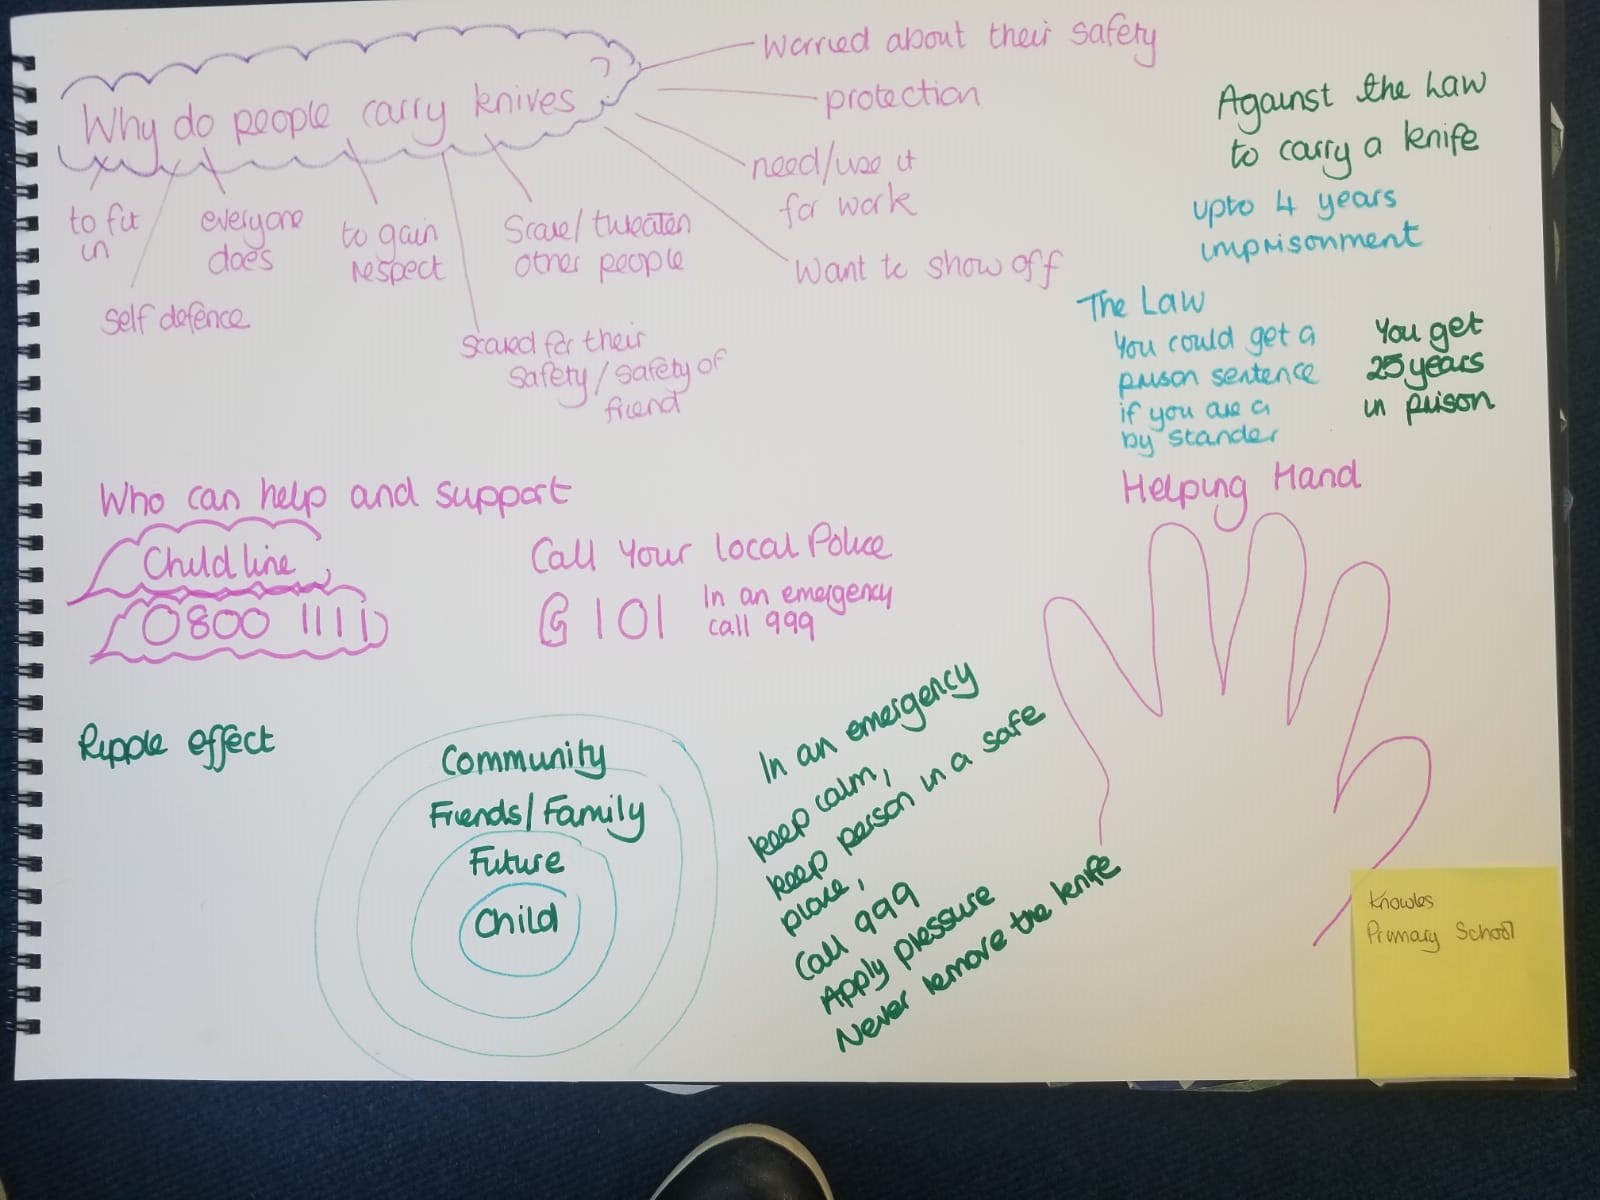 Why do people carry knives ?
Worried about their safety
protection
need/use it
for work
Want to show off
to fit
in
self defence
everyone
does
to gain
respect
Scare/ threaten
other people
scared for their
safety/safety of
friend
Against the Law
to carry a knife
upto 4 years
imprisonment
The Law
You could get a
prison sentence
if you are a
by stander
You get
25 years
in prison
Who can help and support
Child line
0800 1111
Call Your local Police
101
In an emergency
call 999
Helping Hand
Ripple effect
Community
Friends/Family
Future
Child
In an emergency
keep calm,
keep person in a safe
place,
Call 999
Apply pressure
Never remove the knife
Knowles
Primary School